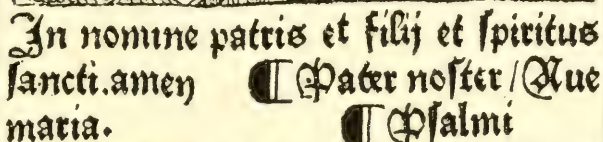 In nomine patris et filij et ſpiritus
ſancti.amen ¶ Pater noſter/Aue
maria. ¶ Pſalmi